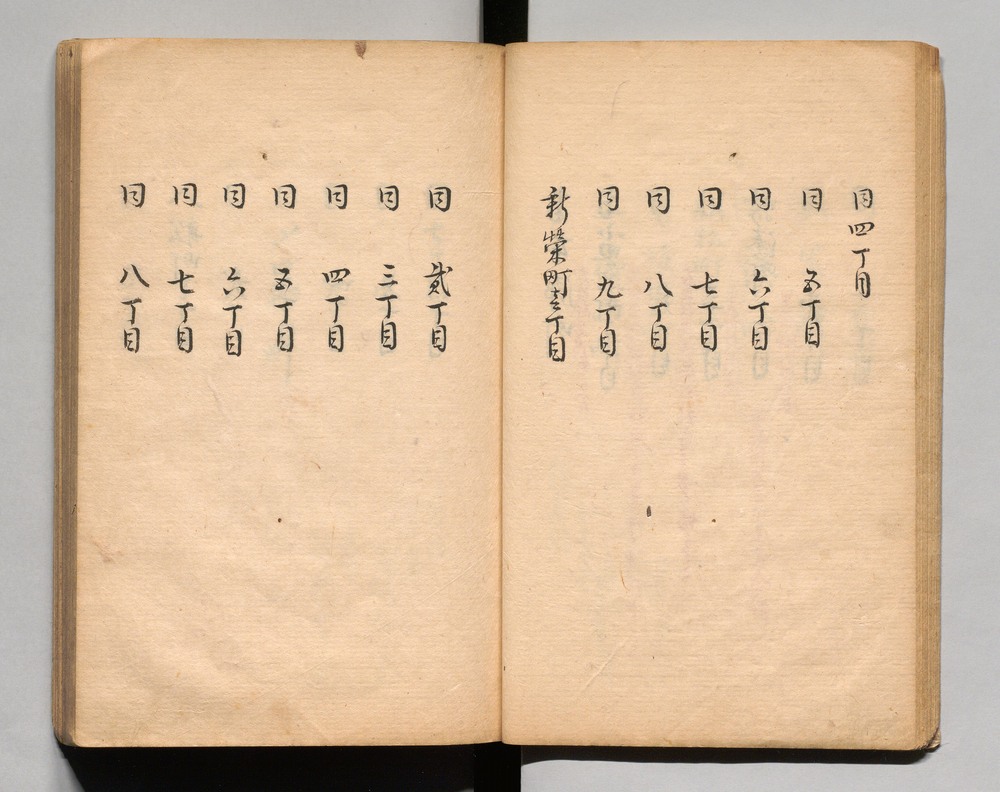 同四丁目
同 五丁目
同 六丁目
同 七丁目
同 八丁目
同 九丁目
新榮町壱丁目
同 貳丁目
同 三丁目
同 四丁目
同 五丁目
同 六丁目
同 七丁目
同 八丁目